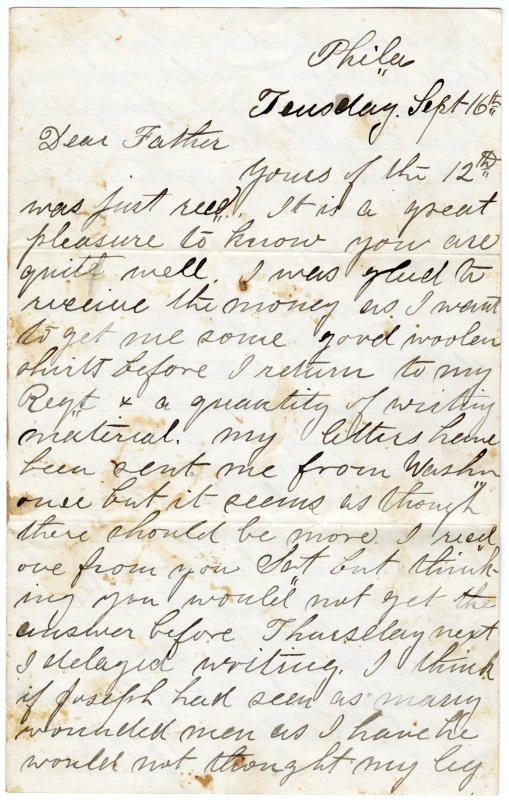 Phila
Teusday. Sept 16th
Dear Father
Yours of the 12th
was just recd. It is a great
pleasure to know you are
quite well. I was glad to
receive the money as I want
to get me some good woolen
shirts before I return to my
Regt & a quantity of writing
material. my letters have
been sent me from Washn
once but it seems as though
there should be more. I recd
one from you Sat but think-
ing you would not get the
answer before Thursday next
I delayed writing. I think
if Joseph had seen as many
wounded men as I have he
would not thought my leg